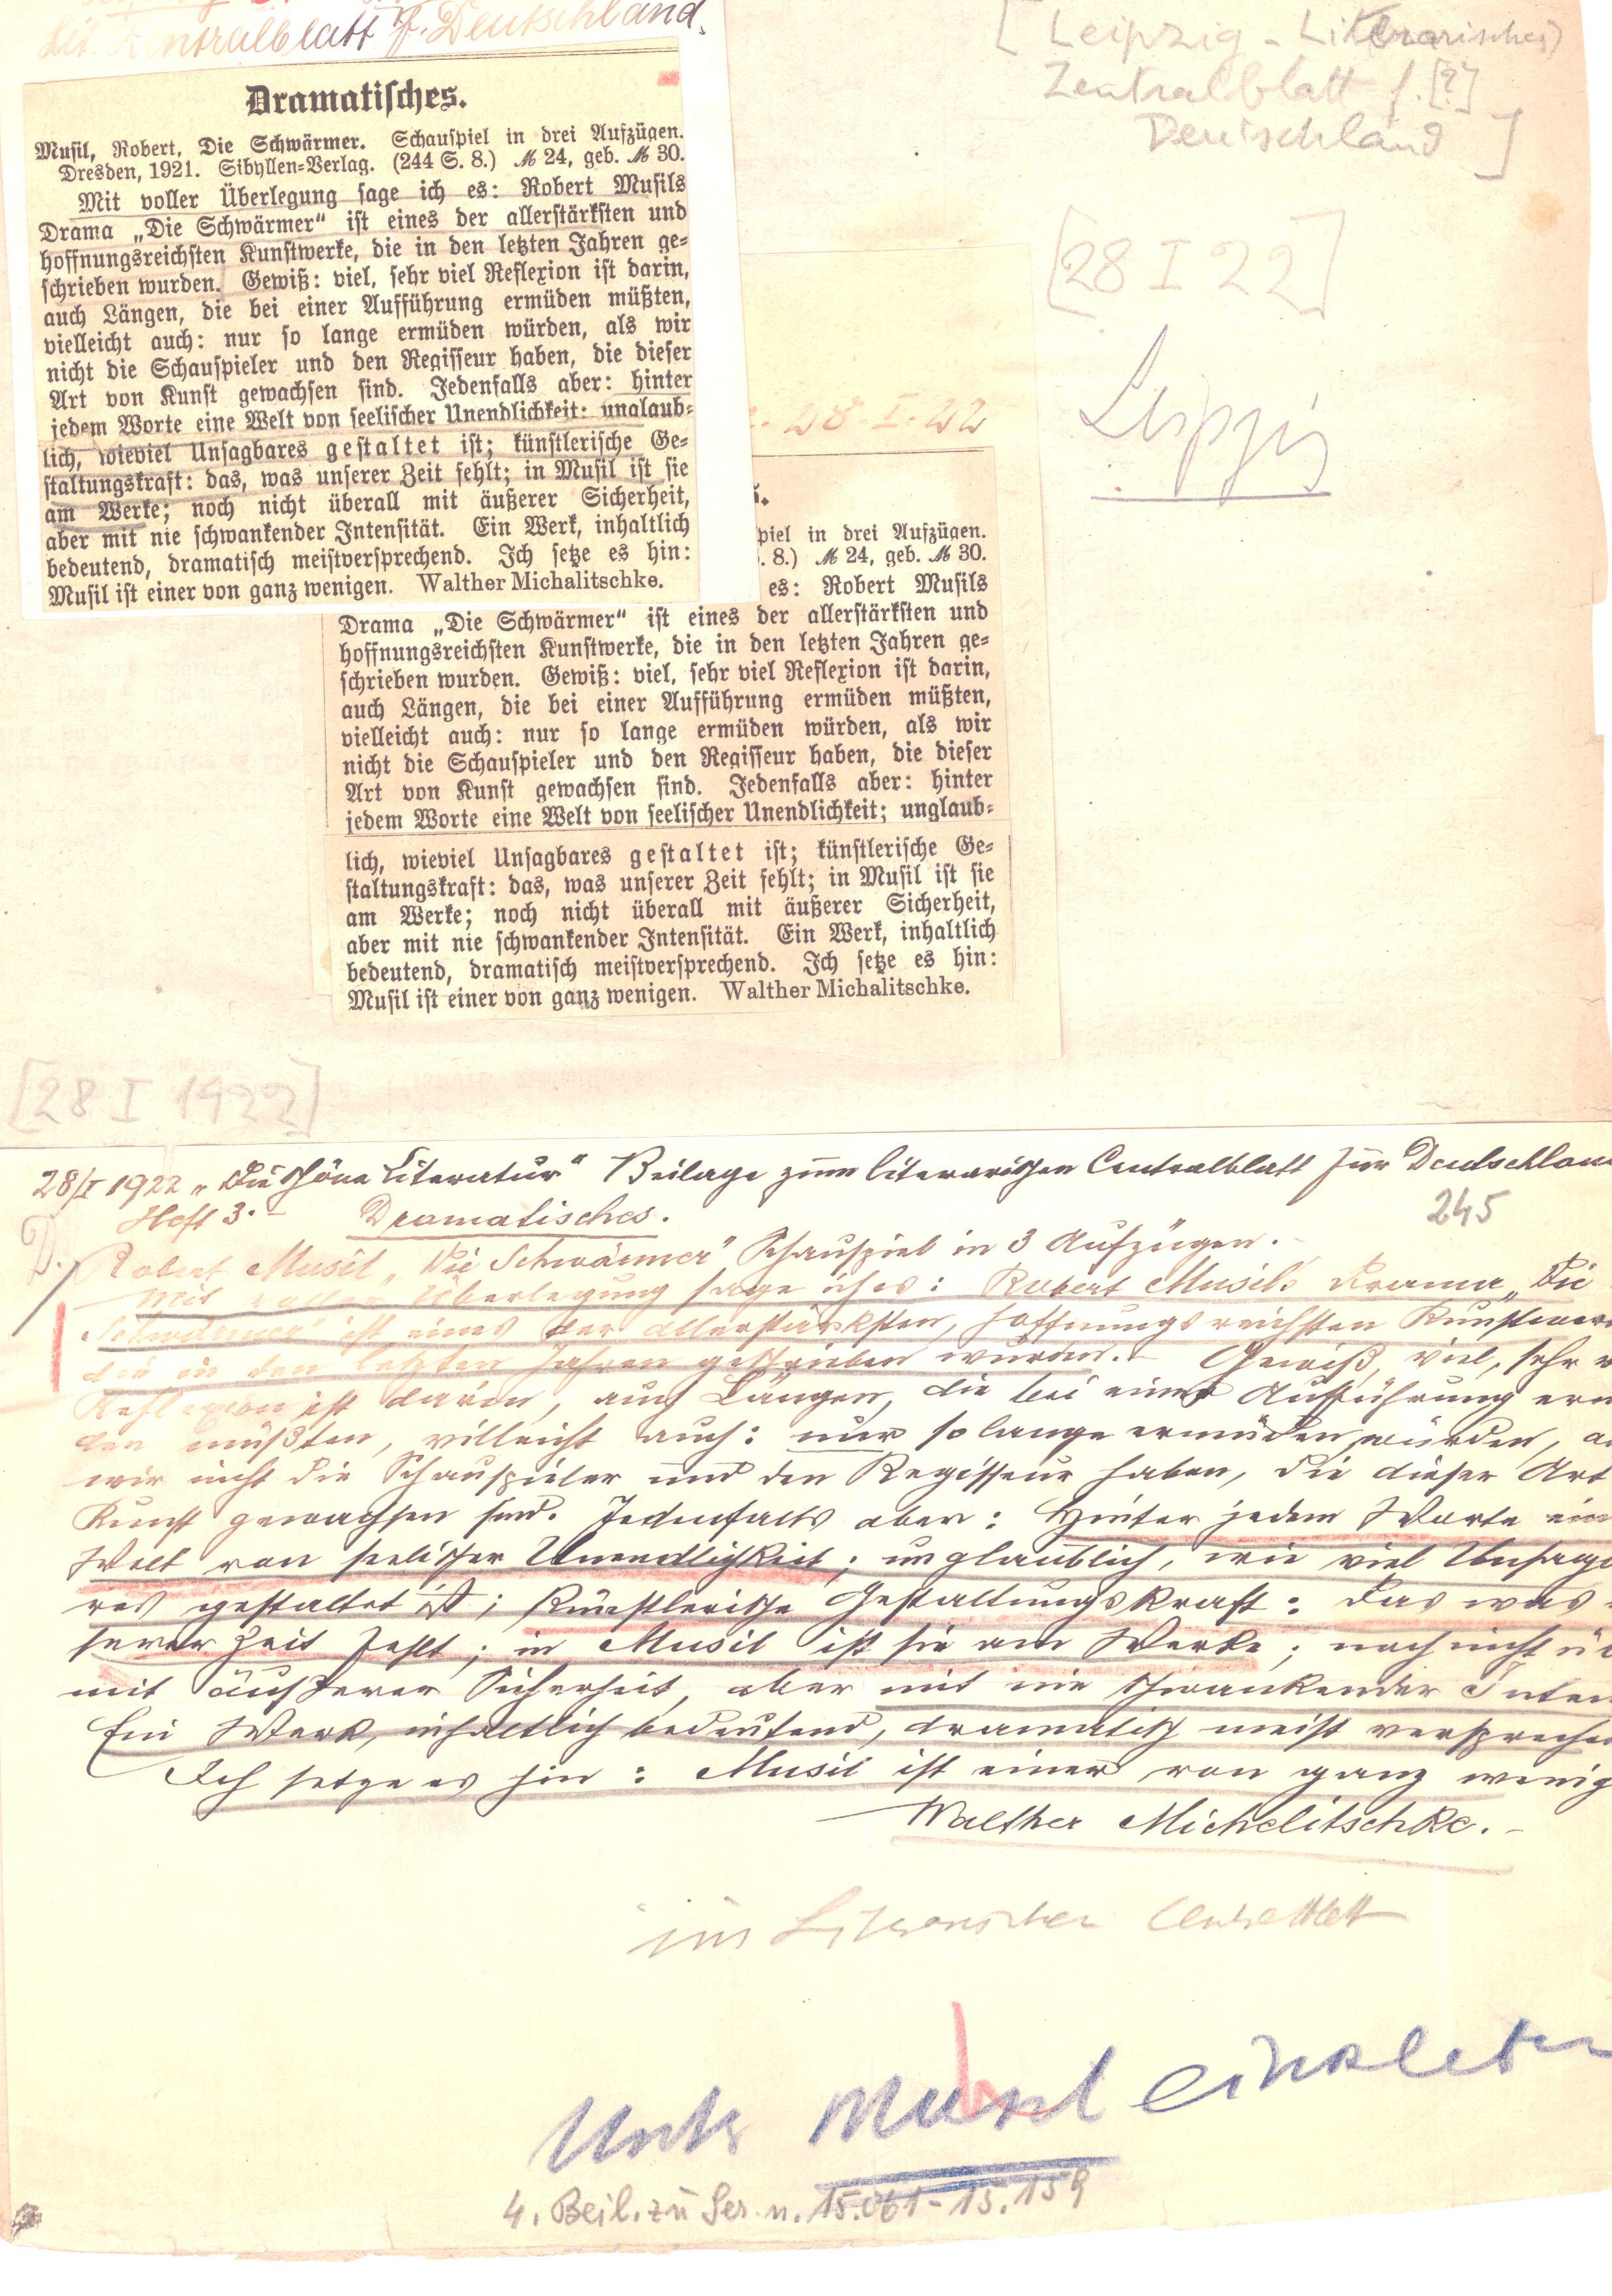 Lit. Zentralblatt f. Deutschland.
[Leipzig - Literarisches
Zentralblatt f. [?]
Deutschland]
Dramatisches.
Musil, Robert, Die Schwärmer. Schauspiel in drei Aufzügen.
Dresden, 1921. Sibyllen-Verlag. (244 S. 8.) ℳ 24, geb. ℳ 30.
Mit voller Überlegung sage ich es: Robert Musils
Drama „Die Schwärmer“ ist eines der allerstärksten und
hoffnungsreichsten Kunstwerke, die in den letzten Jahren ge-
schrieben wurden. Gewiß: viel, sehr viel Reflexion ist darin,
auch Längen, die bei einer Aufführung ermüden müßten,
vielleicht auch: nur so lange ermüden würden, als wir
nicht die Schauspieler und den Regisseur haben, die dieser
Art von Kunst gewachsen sind. Jedenfalls aber: hinter
jedem Worte eine Welt von seelischer Unendlichkeit; unglaub-
lich, wieviel Unsagbares gestaltet ist; künstlerische Ge-
staltungskraft: das, was unserer Zeit fehlt; in Musil ist sie
am Werke; noch nicht überall mit äußerer Sicherheit,
aber mit nie schwankender Intensität. Ein Werk, inhaltlich
bedeutend, dramatisch meistversprechend. Ich setze es hin:
Musil ist einer von ganz wenigen. Walther Michalitschke.
[28 I 22]
Leipzig
28.I.22
piel in drei Aufzügen.
. 8.) ℳ 24, geb. ℳ 30.
es: Robert Musils
Drama „Die Schwärmer“ ist eines der allerstärksten und
hoffnungsreichsten Kunstwerke, die in den letzten Jahren ge-
schrieben wurden. Gewiß: viel, sehr viel Reflexion ist darin,
auch Längen, die bei einer Aufführung ermüden müßten,
vielleicht auch: nur so lange ermüden würden, als wir
nicht die Schauspieler und den Regisseur haben, die dieser
Art von Kunst gewachsen sind. Jedenfalls aber: hinter
jedem Worte eine Welt von seelischer Unendlichkeit; unglaub-
lich, wieviel Unsagbares gestaltet ist; künstlerische Ge-
staltungskraft: das, was unserer Zeit fehlt; in Musil ist sie
am Werke; noch nicht überall mit äußerer Sicherheit,
aber mit nie schwankender Intensität. Ein Werk, inhaltlich
bedeutend, dramatisch meistversprechend. Ich setze es hin:
Musil ist einer von ganz wenigen. Walther Michalitschke.
[28 I 1922]
28/I 1922 „Die schöne Literatur“ Beilage zum literarischen Centralblatt für Deutschlan
Heft 3.- Dramatisches.
245
D.
Robert Musil „Die Schwärmer“ Schauspiel in 3 Aufzügen.
Mit voller Überlegung sage ich es: Robert Musils Drama „Die
Schwärmer“ ist eines der allerstärksten, hoffnungsreichsten Kunstwer
die in den letzten Jahren geschrieben wurden. Gewiß, viel, sehr v
Reflexion ist darin, auch Längen, die bei einer Aufführung erm
den müßten, villeicht auch: nur so lange ermüden würden, a
wir nicht die Schauspieler und den Regisseur haben, die dieser Art
Kunst gewachsen sind. Jedenfalls aber: Hinter jedem Worte ein
Welt von seelischer Unendlichkeit; unglaublich, wie viel Unsagb
res gestaltet ist; künstlerische Gestaltungskraft: Das was
serer Zeit fehlt; in Musil ist sie am Werke; noch nicht üb
mit äußerer Sicherheit, aber mit nie schwankender Inten
Ein Werk, inhaltlich bedeutend, dramatisch meist versprechen
Ich setze es hin: Musil ist einer von ganz wenig
Walther Michelitschke.-
im Literarischen Centralblatt
Unter Musil einkleben
4. Beil. zu Ser. n. 15.061-15.159